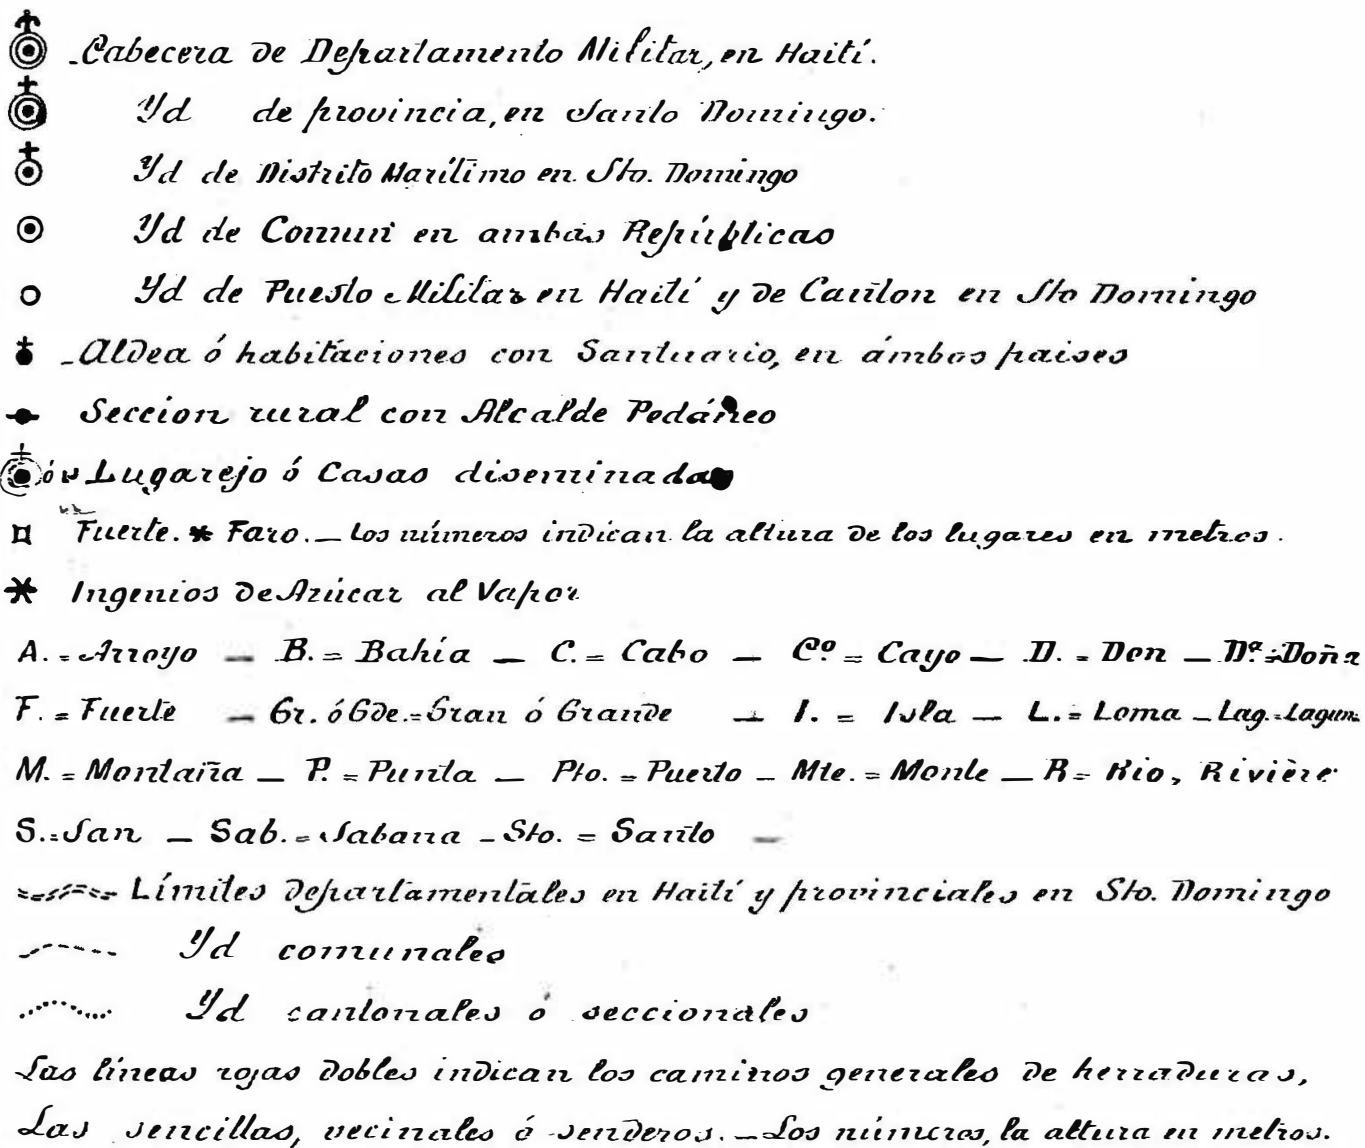 Cabecera de Departamento Militar, en Haití.
Yd de provincia, en Santo Domingo.
Yd de Distrito Marítimo en Sto. Domingo
Yd de Comun en ambas Repúblicas
Yd de Puesto Militar en Haití y de Canton en Sto Domingo
Aldea ó habitaciones con Santuario, en ámbos paises
Seccion rural con Alcalde Pedáneo
Lugarejo ó Casas diseminadas
Fuerte. * Faro. — Los números indican la altura de los lugares en metros.
Ingenios de Azúcar al Vapor
A. = Arroyo — B. = Bahía — C. = Cabo — Cº = Cayo — D. = Don — Dª = Doña
F. = Fuerte — Gr. ó Gde. = Gran ó Grande — I. = Isla — L. = Loma — Lag. = Laguna
M. = Montaña — P. = Punta — Pto. = Puerto — Mte. = Monte — R = Rio, Rivière
S. = San — Sab. = Sabana — Sto. = Santo —
Límites departamentales en Haití y provinciales en Sto. Domingo
Yd comunales
Yd cantonales ó seccionales
Las líneas rojas dobles indican los caminos generales de herraduras,
Las sencillas, vecinales ó senderos. — Los números, la altura en metros.